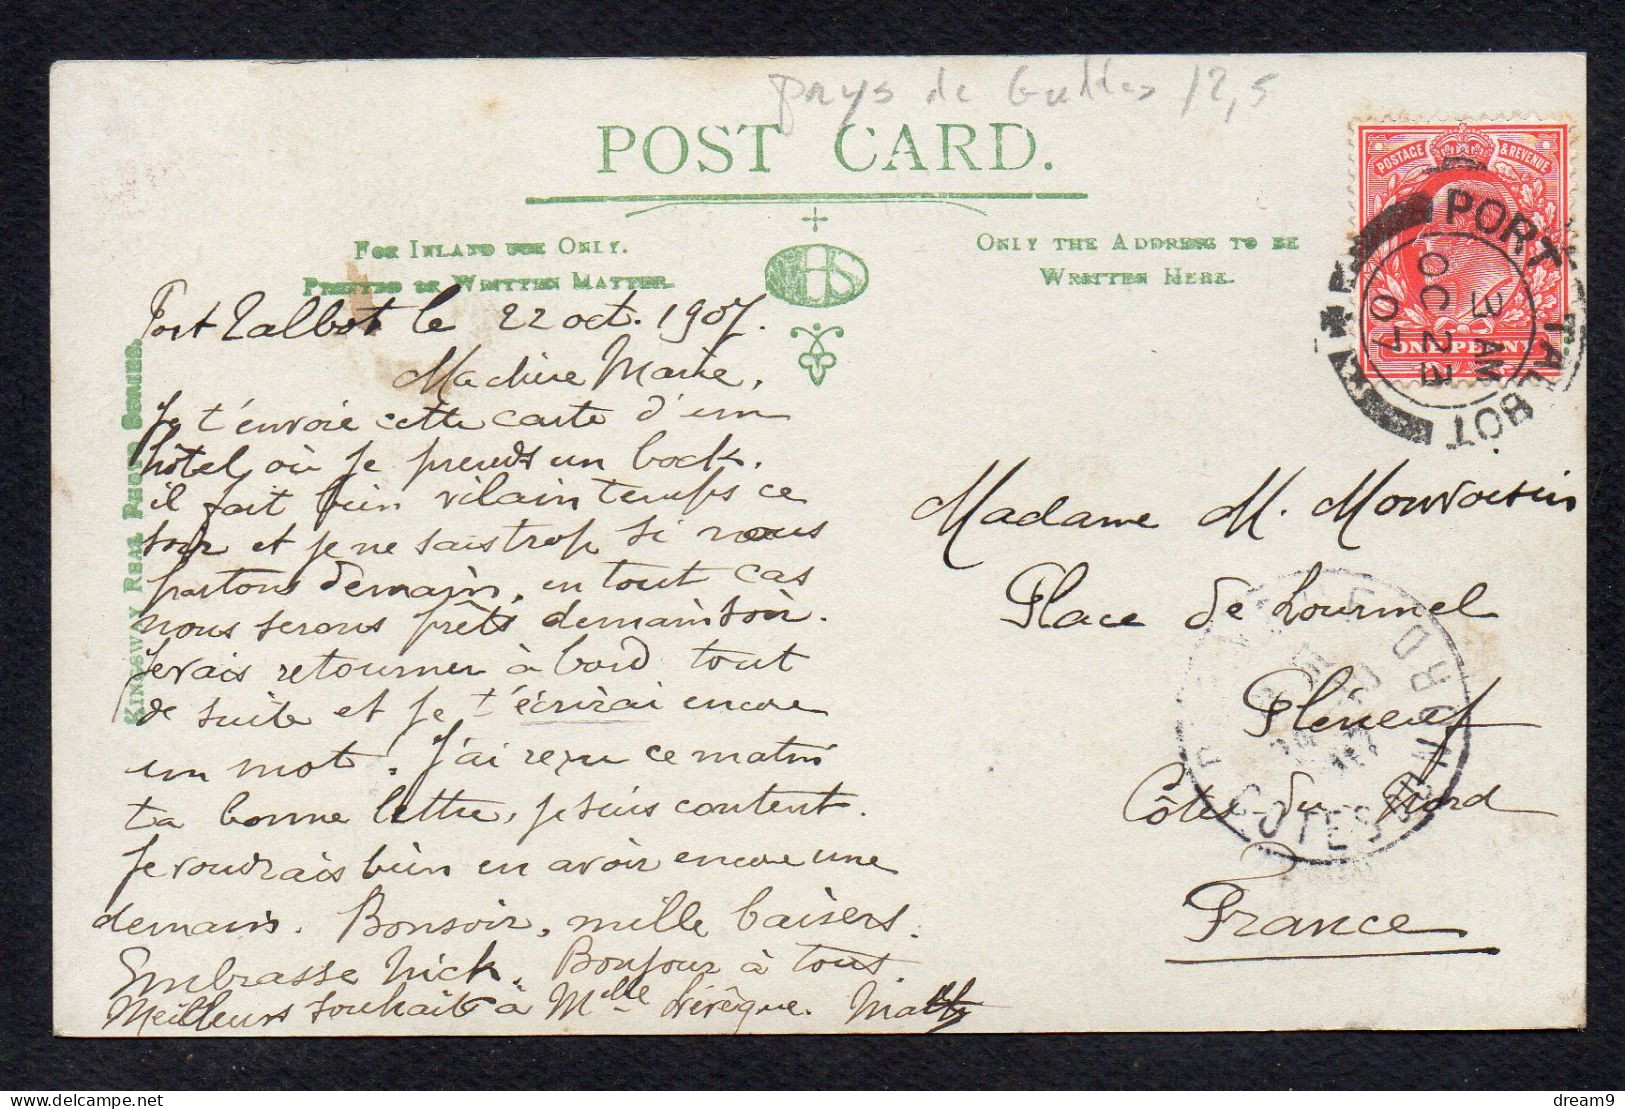 pays de Galles 12,5
POST CARD.
FOR INLAND USE ONLY.
PRINTED OR WRITTEN MATTER.
ONLY THE ADDRESS TO BE
WRITTEN HERE.
KINGSWAY REAL PHOTO SERIES.
WHS
POSTAGE & REVENUE
ONE PENNY
PORT TALBOT
3 AM
OC 23
07
Port Talbot le 22 oct. 1907.
Ma chère Marie,
Je t'envoie cette carte d'un
hôtel où je prends un bock.
il fait bien vilain temps ce
soir et je ne sais trop si nous
partons demain, en tout cas
nous serons prêts demain soir.
Je vais retourner à bord tout
de suite et je t'écrirai encore
un mot. J'ai reçu ce matin
ta bonne lettre, je suis content.
Je voudrais bien en avoir encore une
demain. Bonsoir, mille baisers.
Embrasse Nick. Bonjour à tous.
Meilleurs souhaits à Mlle Lévêque.
Madame M. Mouvoisin
Place de Lourmel
Pleneuf
Côtes du Nord
France
COTES DU NORD
delcampe.net
dream9